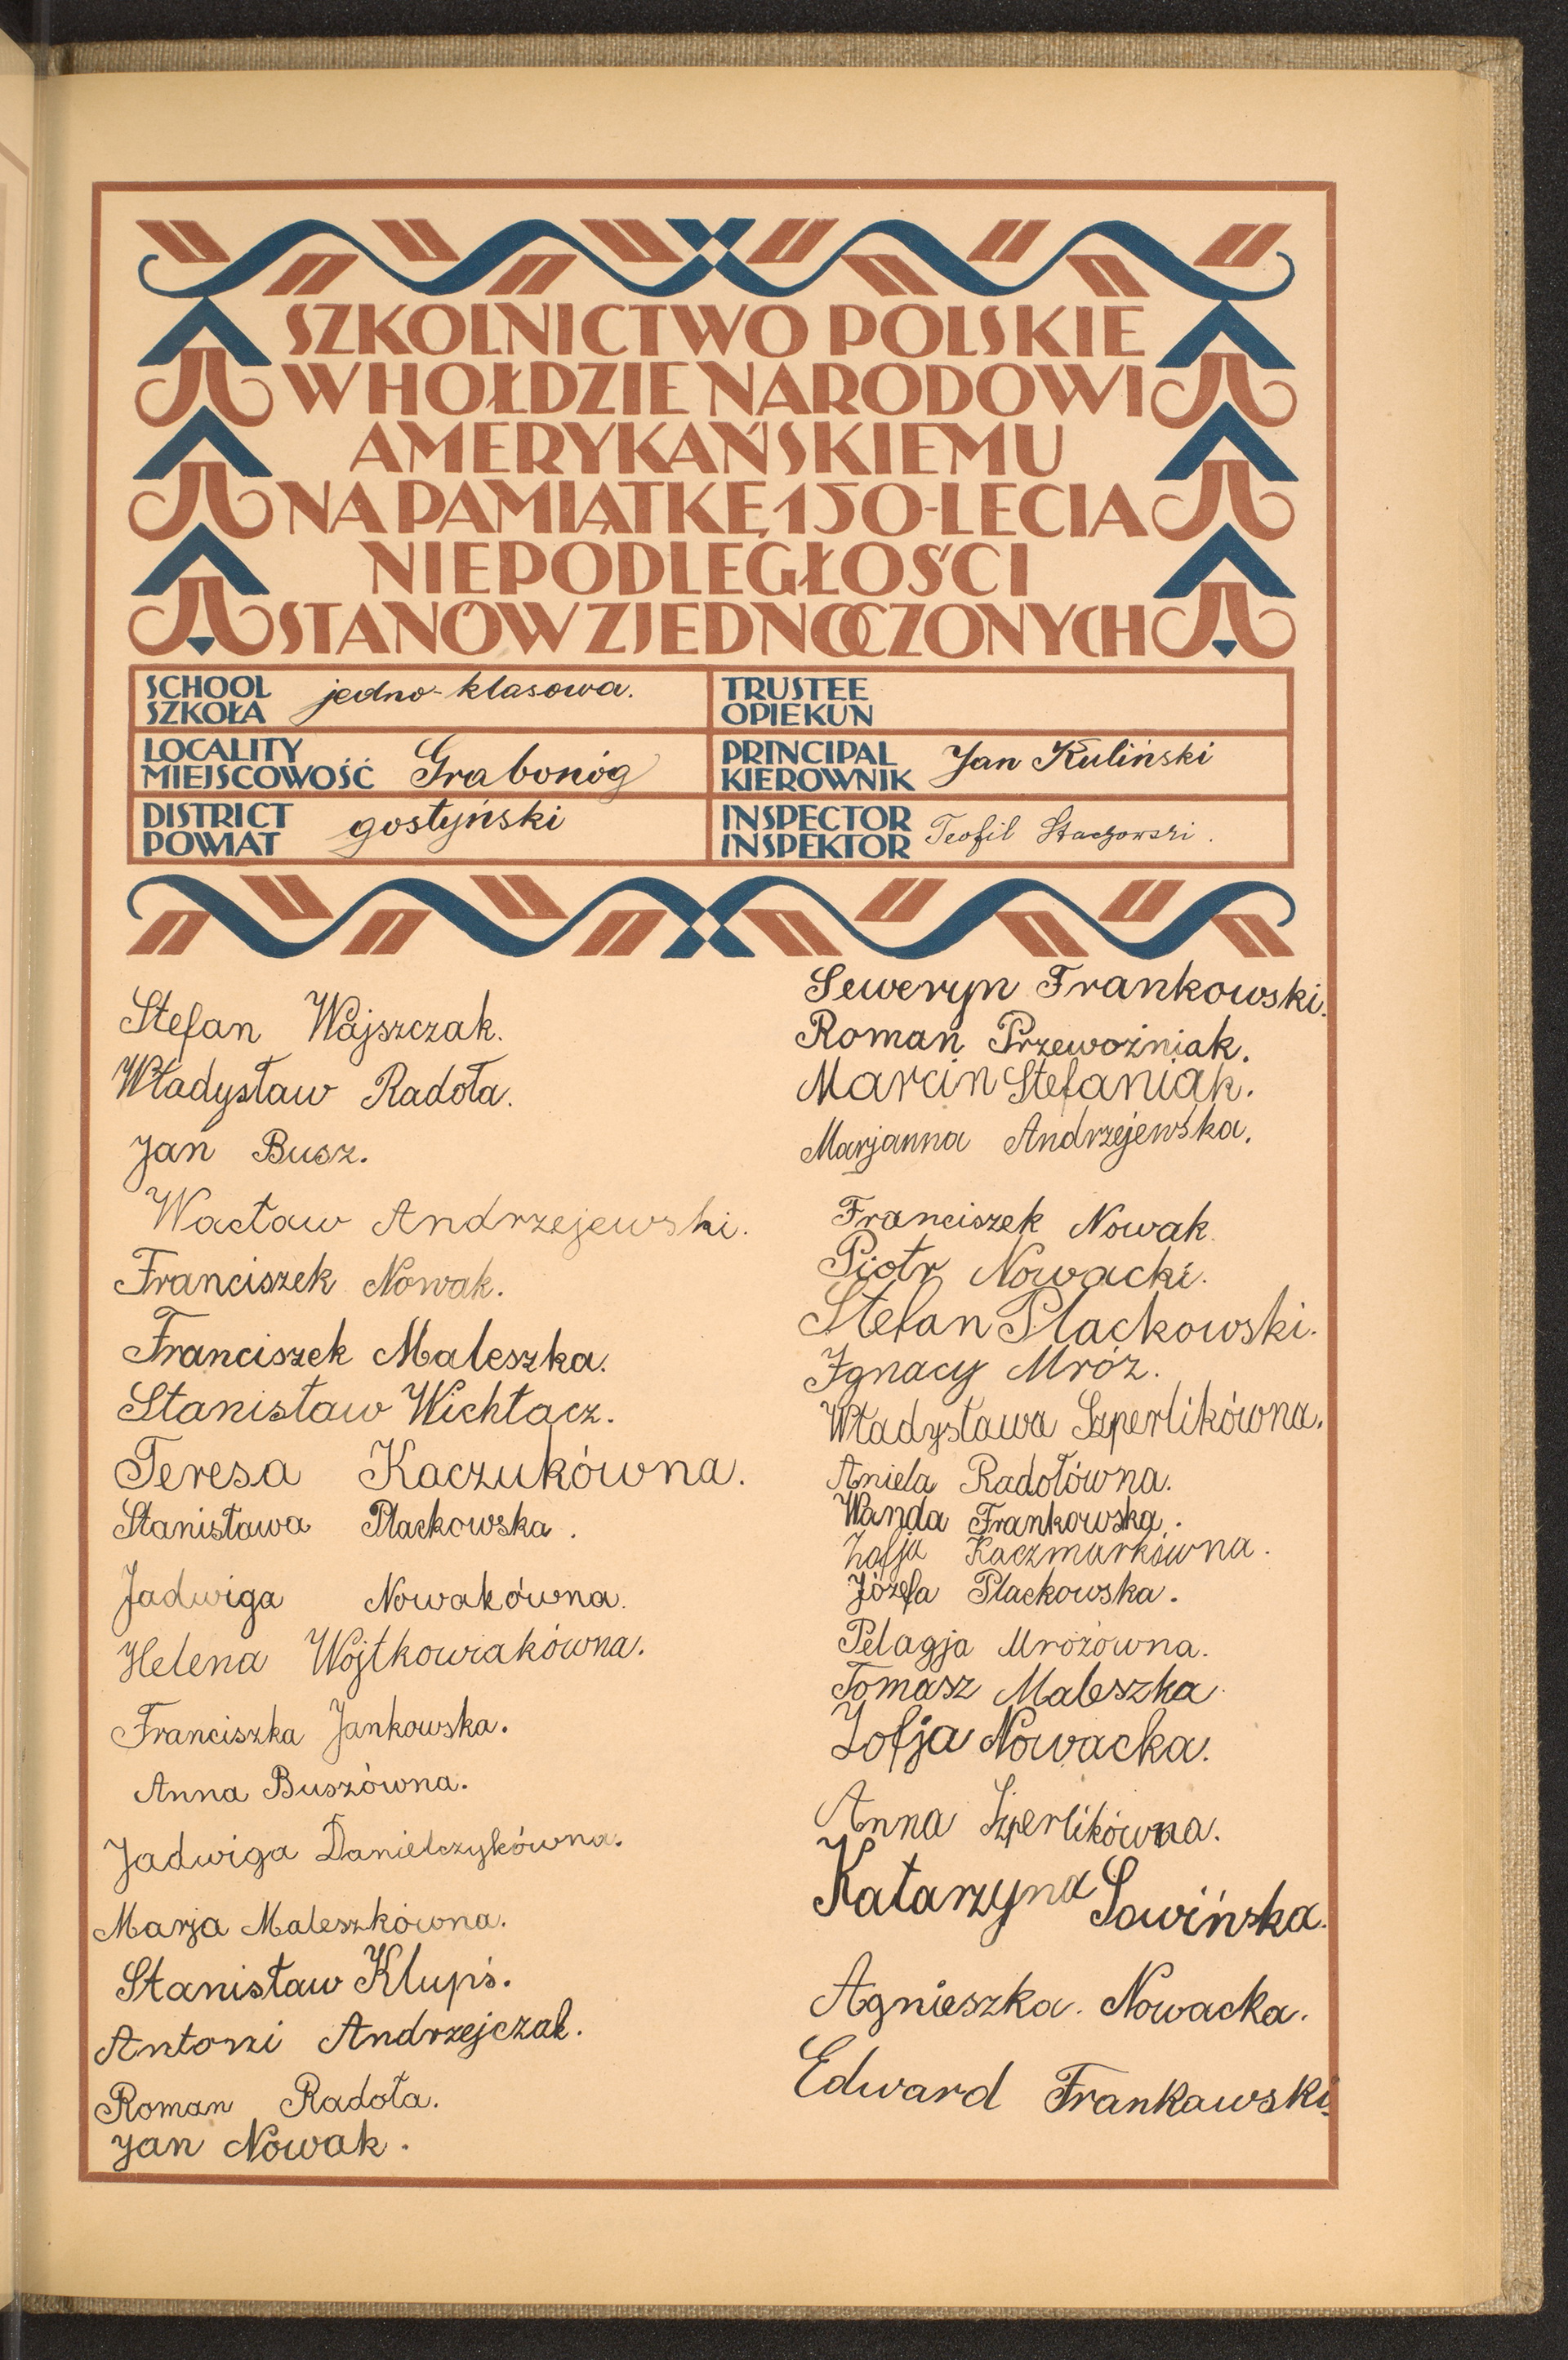 SZKOLNICTWO POLSKIE
W HOŁDZIE NARODOWI
AMERYKAŃSKIEMU
NA PAMIĄTKĘ 150-LECIA
NIEPODLEGŁOŚCI
STANÓW ZJEDNOCZONYCH
SCHOOL
SZKOŁA
jedno-klasowa.
TRUSTEE
OPIEKUN
LOCALITY
MIEJSCOWOŚĆ
Grabonóg
PRINCIPAL
KIEROWNIK
Jan Kuliński
DISTRICT
POWIAT
gostyński
INSPECTOR
INSPEKTOR
Teofil Stachowski.
Stefan Wajszczak.
Władysław Radoła.
Jan Busz.
Wacław Andrzejewski.
Franciszek Nowak.
Franciszek Maleszka.
Stanisław Wichłacz.
Teresa Kaczukówna.
Stanisława Plackowska.
Jadwiga Nowakówna.
Helena Wojtkowiakówna.
Franciszka Jankowska.
Anna Buszówna.
Jadwiga Danielczykówna.
Marja Maleszkówna.
Stanisław Klupś.
Antoni Andrzejczak.
Roman Radoła.
Jan Nowak.
Seweryn Frankowski.
Roman Przewoźniak.
Marcin Stefaniak.
Marjanna Andrzejewska.
Franciszek Nowak.
Piotr Nowacki.
Stefan Plackowski.
Ignacy Mróz.
Władysława Szperlikówna.
Aniela Radołówna.
Wanda Frankowska.
Zofja Kaczmarkówna.
Józefa Plackowska.
Pelagja Mrozówna.
Tomasz Maleszka.
Zofja Nowacka.
Anna Szperlikówna.
Katarzyna Sowińska.
Agnieszka. Nowacka.
Edward Frankawski.